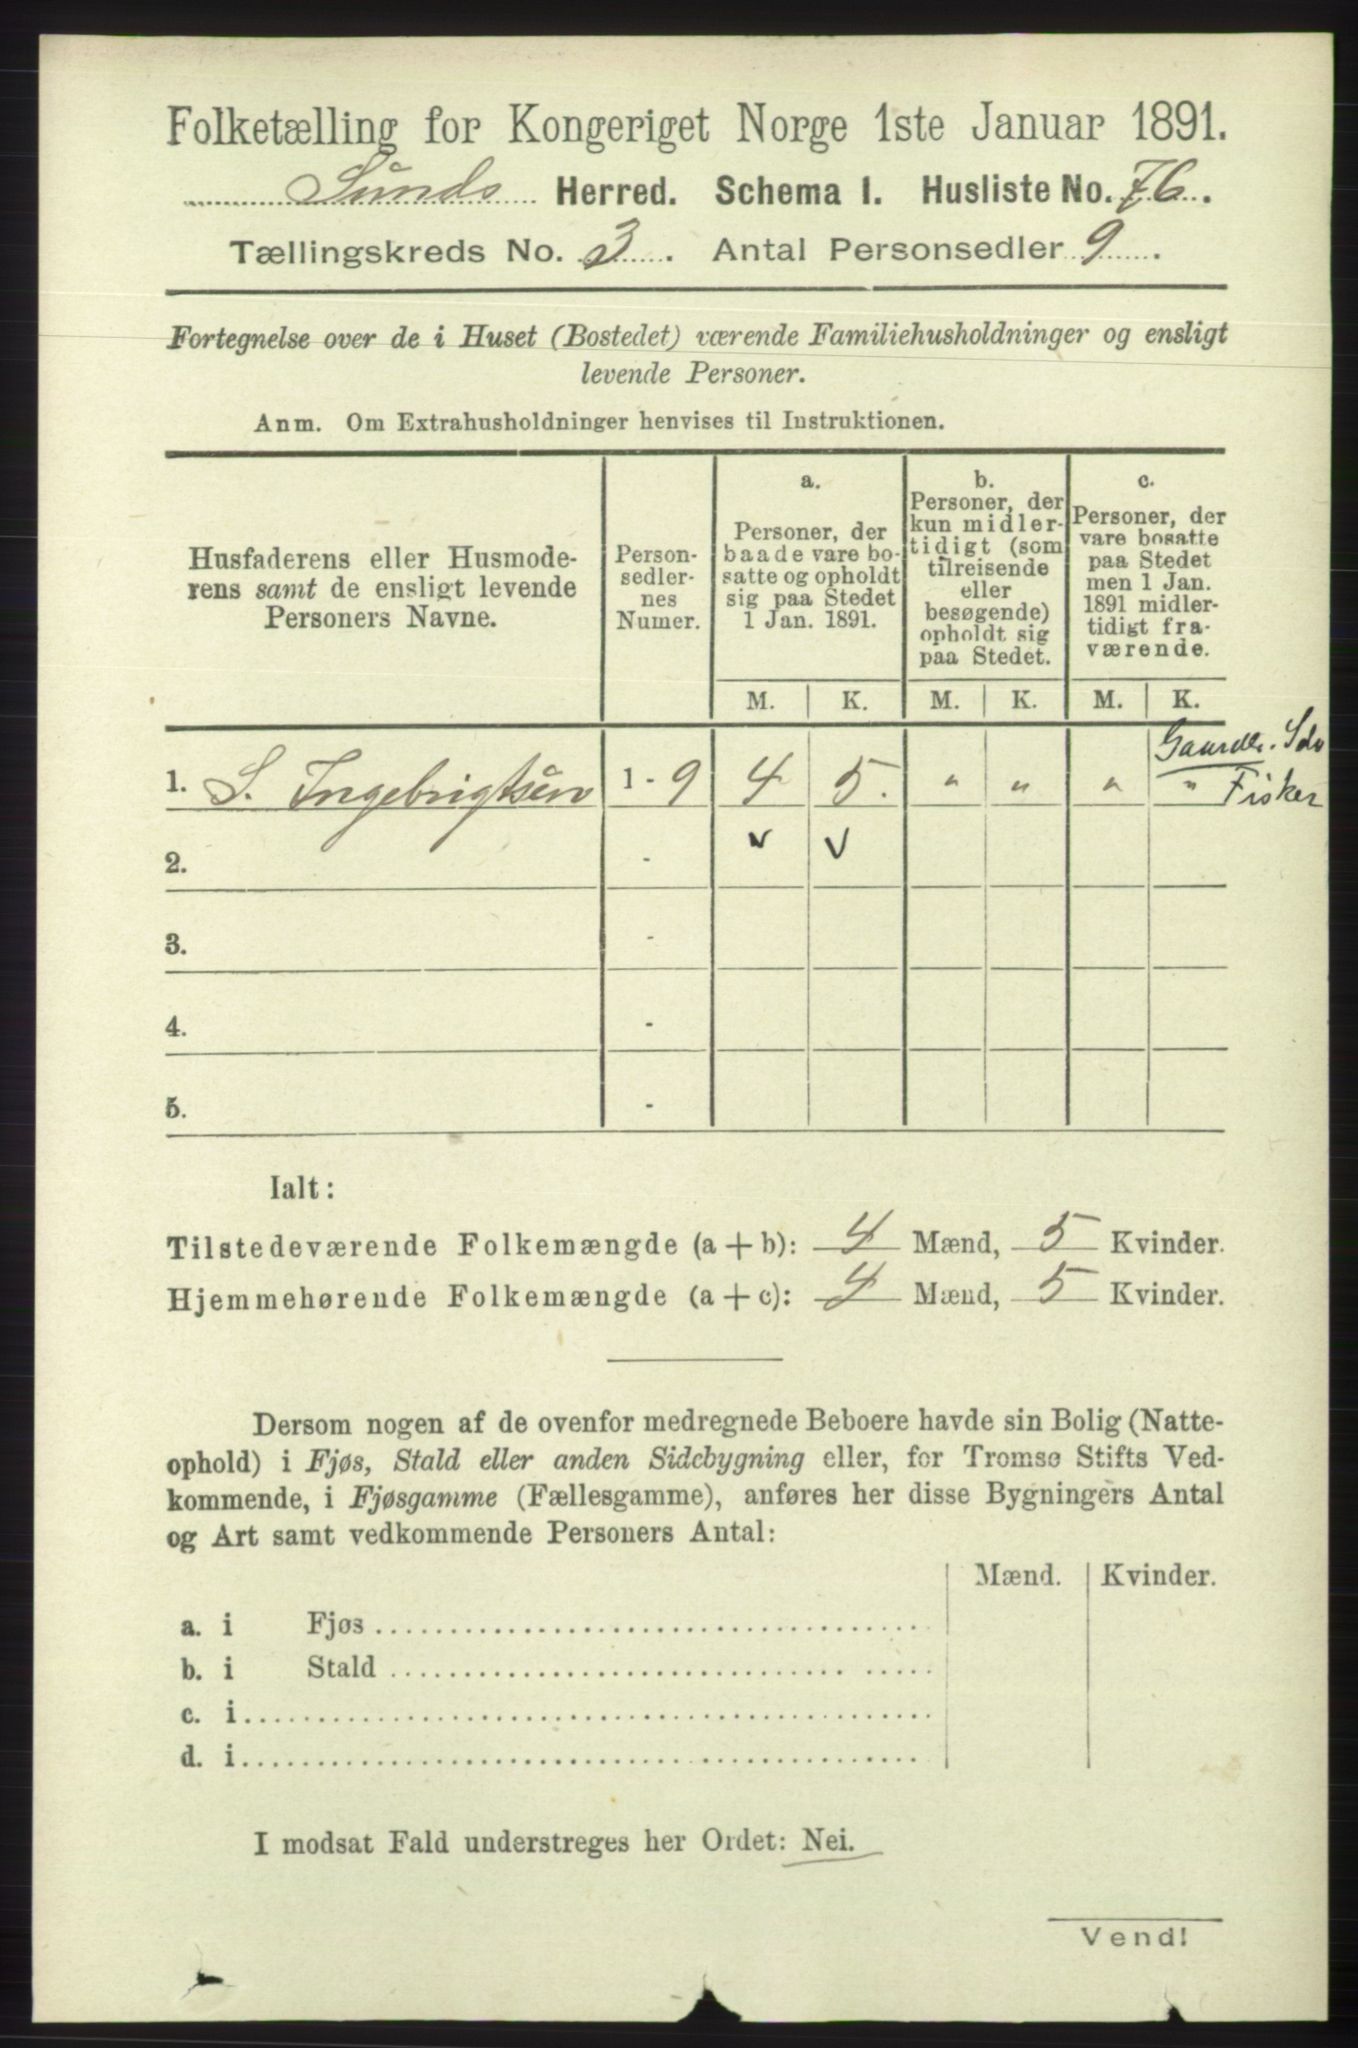 Folketælling for Kongeriget Norge 1ste Januar 1891.
Sunds Herred. Schema 1. Husliste No. 76.
Tællingskreds No. 3. Antal Personsedler 9.
Fortegnelse over de i Huset (Bostedet) værende Familiehusholdninger og ensligt
levende Personer.
Anm. Om Extrahusholdninger henvises til Instruktionen.
Husfaderens eller Husmode-
rens samt de ensligt levende
Personers Navne.
Person-
sedler-
nes
Numer.
a.
Personer, der
baade vare bo-
satte og opholdt
sig paa Stedet
1 Jan. 1891.
b.
Personer, der
kun midler-
tidigt (som
tilreisende
eller
besøgende)
opholdt sig
paa Stedet.
c.
Personer, der
vare bosatte
paa Stedet
men 1 Jan.
1891 midler-
tidigt fra-
værende.
M. K. M. K. M. K.
Gaardbr. Selv
1. S. Ingebrigtsen 1 - 9 4 5. " " " " Fisker
2. - v v
3. -
4. -
5. -
Ialt:
Tilstedeværende Folkemængde (a + b): 4 Mænd, 5 Kvinder.
Hjemmehørende Folkemængde (a + c): 4 Mænd, 5 Kvinder.
Dersom nogen af de ovenfor medregnede Beboere havde sin Bolig (Natte-
ophold) i Fjøs, Stald eller anden Sidebygning eller, for Tromsø Stifts Ved-
kommende, i Fjøsgamme (Fællesgamme), anføres her disse Bygningers Antal
og Art samt vedkommende Personers Antal:
Mænd. Kvinder.
a. i Fjøs
b. i Stald
c. i
d. i
I modsat Fald understreges her Ordet: Nei.
Vend!